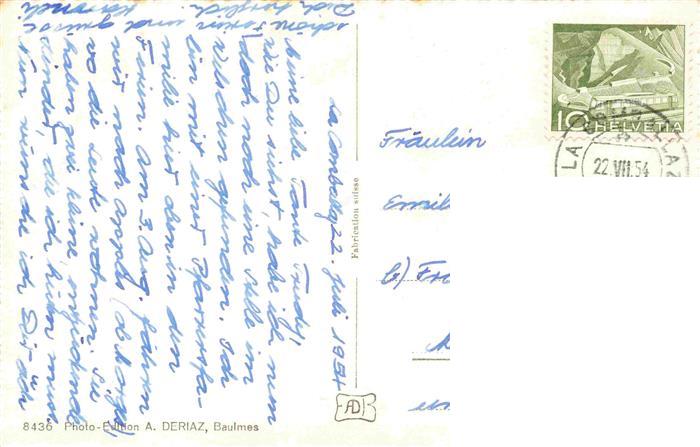 La Comballaz 22. Juli 1954
Meine liebe Tante Trudy,
wie Du siehst, habe ich nun
doch noch eine Stelle im
Welschen gefunden. Ich
bin mit einer Pfarrersfa-
milie hier oben in den
Ferien. Am 3. Aug. fahren
wir nach
wo die Leute wohnen. Sie
haben zwei kleine, entzückende
Kinder, die ich hüten muss.
Nun wünsche ich Dir
schöne Ferien und grüsse
Dich herzlich
Fräulein
Emil
b) Fra
Fabrication suisse
8436 Photo-Edition A. DERIAZ, Baulmes
AD
10
HELVETIA
LA COMBALLAZ
22.VII.54